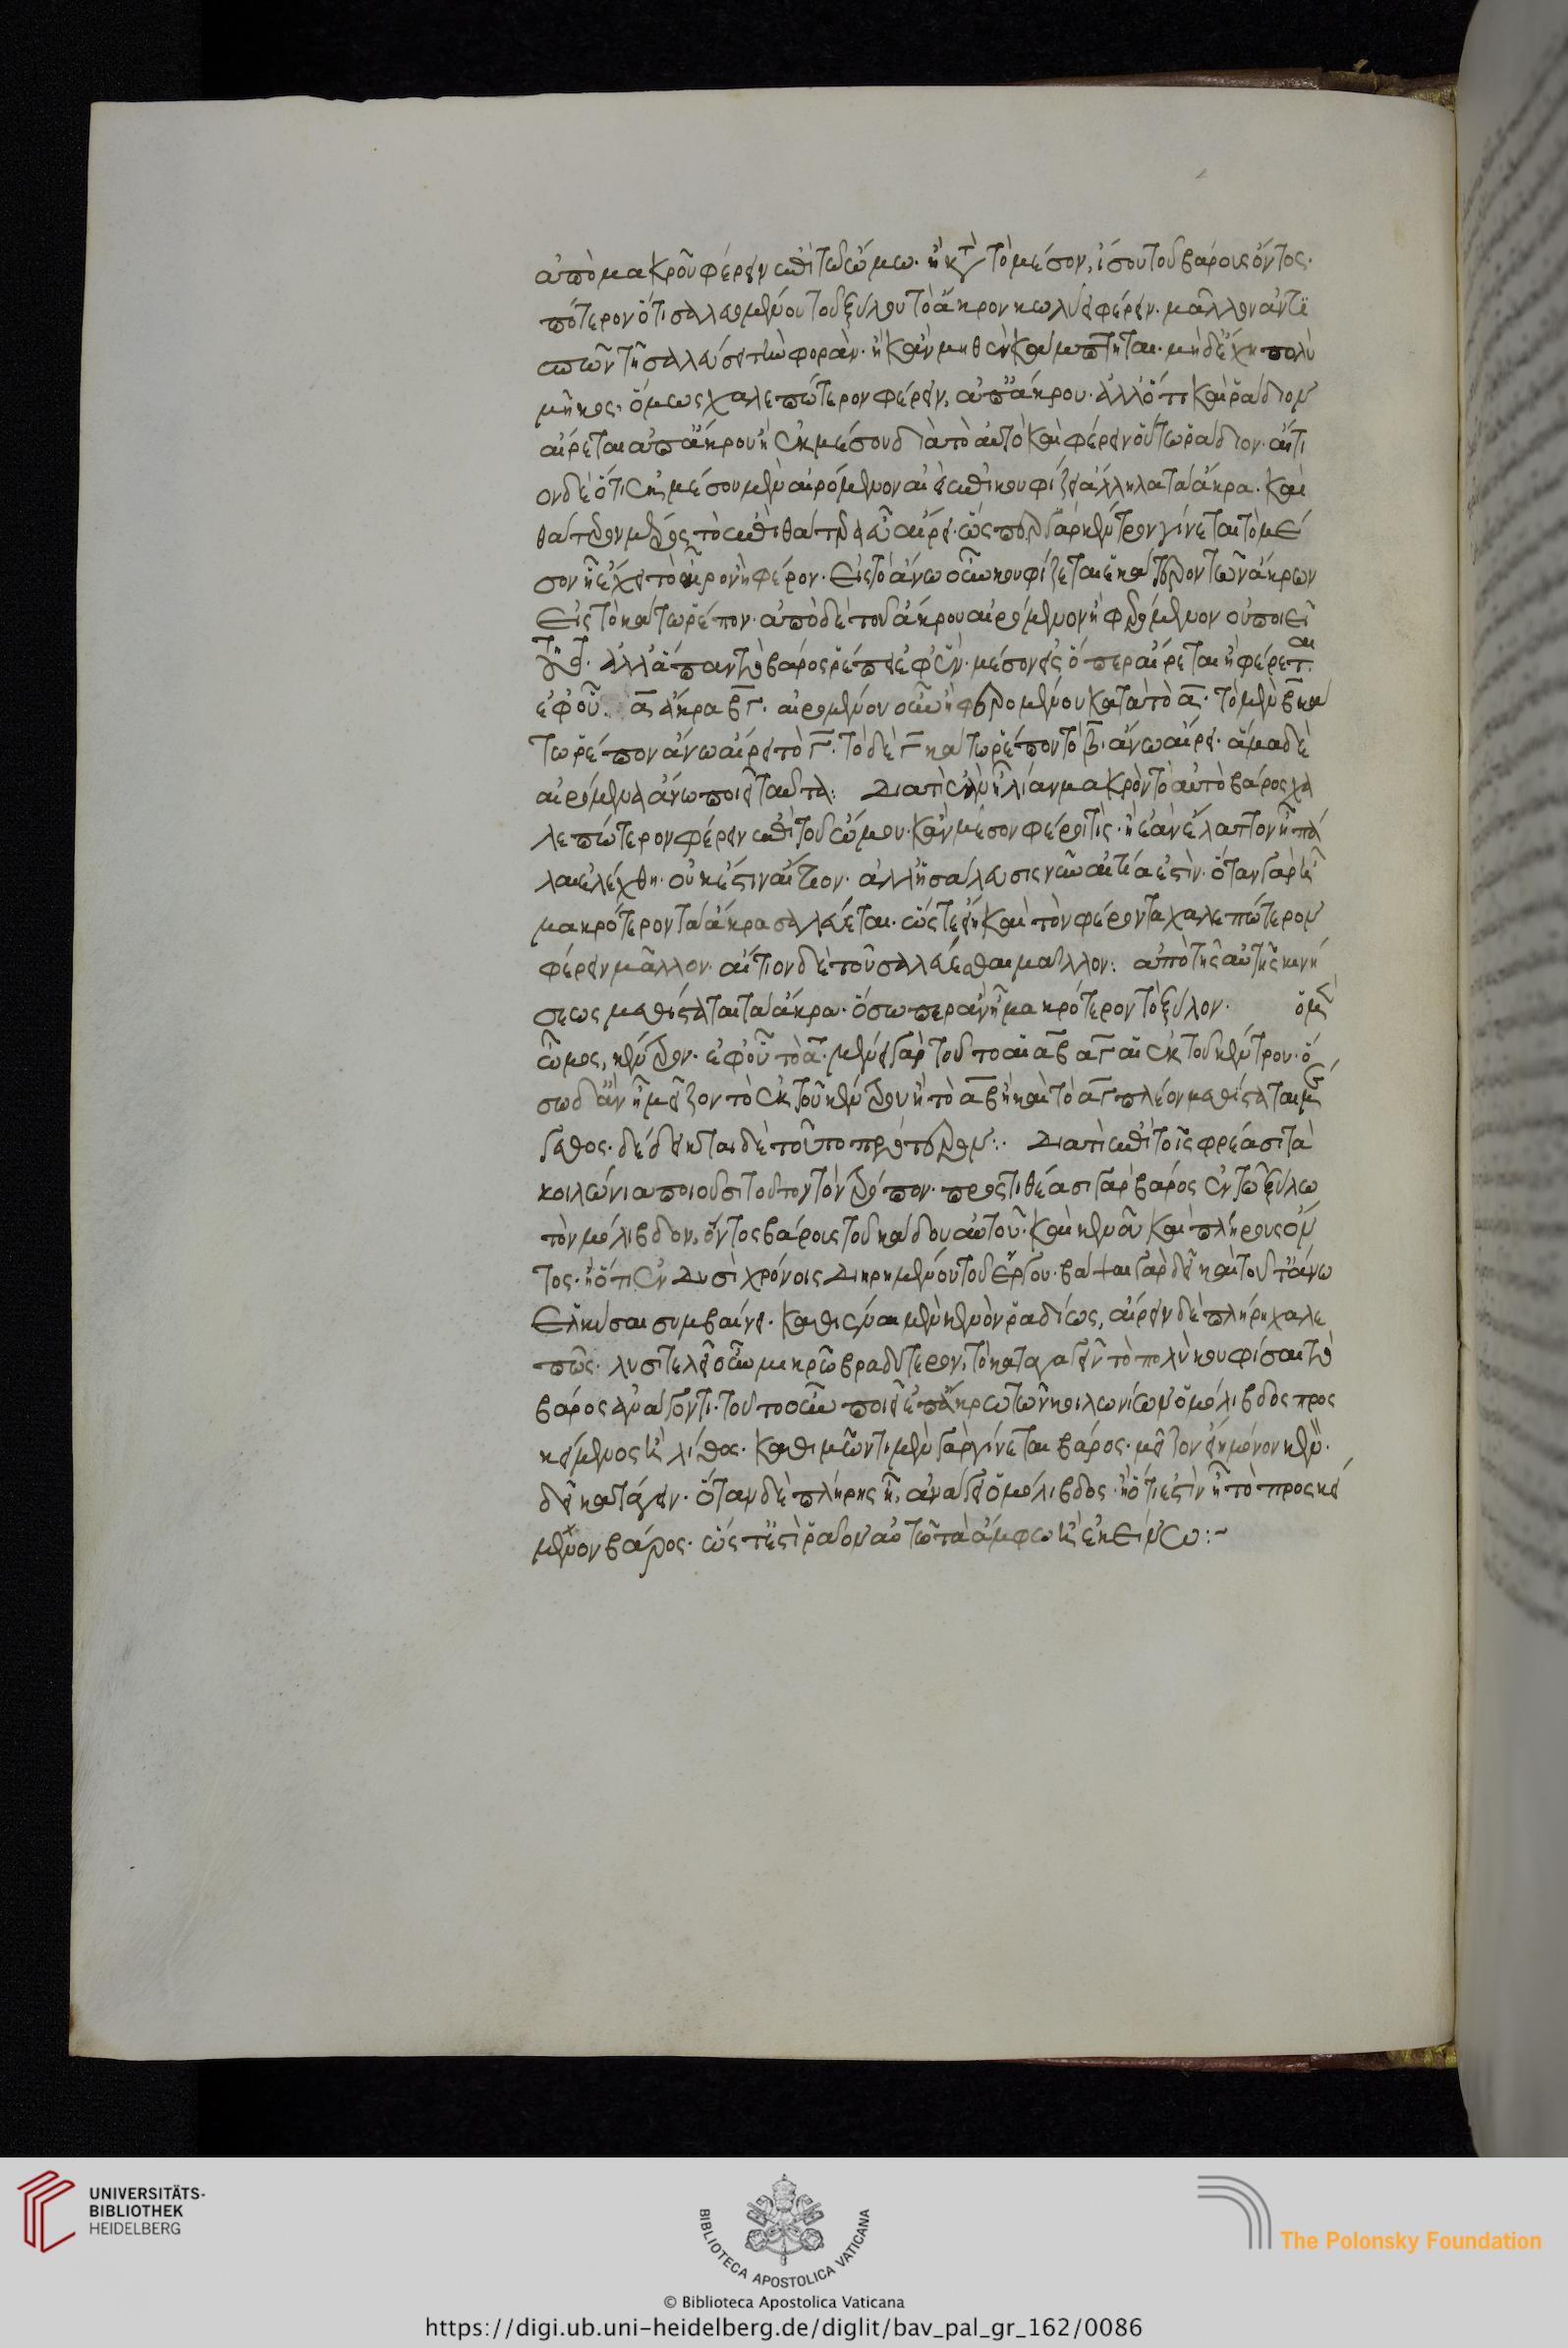 ἀπὸ μακροῦ φέρειν ἐπὶ τῶ ὤμω. ἢ κατὰ τὸ μέσον, ἴσου τοῦ βάρους ὄντος.
πότερον ὅτι σαλευομένου τοῦ ξύλου τὸ ἄκρον κωλύει φέρειν. μᾶλλον ἀντι
σπῶν τῆ σαλεύσει τὴν φοράν. ἢ κἂν μηθὲν κάμπτηται. μὴ δ' ἔχη πολὺ
μῆκος. ὅμως χαλεπώτερον φέρειν, ἀπ' ἄκρου. ἀλλ' ὅτι καὶ ῥάδιον
αἴρεται ἀπ' ἄκρου ἢ ἐκ μέσου διὰ τὸ αὐτὸ καὶ φέρειν οὕτω ῥάδιον. αἴτι
ον δὲ ὅτι ἐκ μέσου μὲν αἰρόμενον αἰεὶ ἐπικουφίζει ἄλληλα τὰ ἄκρα. καὶ
θάτερον μέρος τὸ ἐπὶ θάτερα εὖ αἴρει. ὥσπερ γὰρ κέντρον γίνεται τὸ μέ
σον ἧ ἔχει τὸ αἶρον ἢ φέρον. εἰς τὸ ἄνω οὖν κουφίζεται ἑκάτερον τῶν ἄκρων
εἰς τὸ κάτω ῥέπον. ἀπὸ δὲ τοῦ ἄκρου αἰρόμενον ἢ φερόμενον οὐ ποιεῖ
τοῦτο. ἀλλ' ἅπαν τὸ βάρος ῥέπει ἐφ' ἕν. μέσον εἰς ὅπερ αἴρεται ἢ φέρεται.
ἐφ' οὗ α ἄκρα β γ. αἰρομένου οὖν ἢ φερομένου κατὰ τὸ α. τὸ μὲν β κά
τω ῥέπον ἄνω αἴρει τὸ γ. τὸ δὲ γ κάτω ῥέπον τὸ β. ἄνω αἴρει. ἅμα δὲ
αἰρόμενα ἄνω ποιεῖ ταῦτα: Διατὶ ἐὰν ἦ λίαν μακρὸν τὸ αὐτὸ βάρος χα
λεπώτερον φέρειν ἐπὶ τοῦ ὤμου. κἂν μέσον φέρη τίς. ἢ ἐὰν ἔλαττον ἦ πά
λαι ἐλέχθη. οὐκ ἔστιν αἴτιον. ἀλλ' ἡ σάλευσις νῦν αἰτία ἐστίν. ὅταν γὰρ ἦ
μακρότερον τὰ ἄκρα σαλεύεται. ὥστε εἴη καὶ τὸν φέροντα χαλεπώτερον
φέρειν μᾶλλον. αἴτιον δὲ τοῦ σαλεύεσθαι μᾶλλον: ἀπὸ τῆς αὐτῆς κινή
σεως μεθίσταται τὰ ἄκρα. ὅσω περ ἂν ἦ μακρότερον τὸ ξύλον. ὁ μὲν
ὦμος, κέντρον. ἐφ' οὗ τὸ α. μένει γὰρ τοῦτο αἱ αβ αγ αἱ ἐκ τοῦ κέντρου. ὅ
σω δ' ἂν ἦ μεῖζον τὸ ἐκ τοῦ κέντρου ἢ τὸ αβ ἢ καὶ τὸ αγ πλέον μεθίσταται μέ
γεθος. δέδεικται δὲ τοῦτο πρότερον: Διατὶ ἐπὶ τοῖς φρέασι τὰ
κηλώνια ποιοῦσι τοῦτον τὸν τρόπον. προστιθέασι γὰρ βάρος ἐν τῶ ξύλω
τὸν μόλιβδον, ὄντος βάρους τοῦ κάδου αὐτοῦ. καὶ κενοῦ καὶ πλήρους ὄν
τος. ἢ ὅτι ἐν δυσὶ χρόνοις διηρημένου τοῦ ἔργου. βάψαι γὰρ δεῖ καὶ τοῦτ' ἄνω
ἑλκύσαι συμβαίνει. καθιέναι μὲν κενὸν ῥαδίως, αἴρειν δὲ πλήρη χαλε
πῶς. λυσιτελεῖ οὖν μικρῶ βραδύτερον, τὸ καταγαγεῖν τὸ πολὺ κουφίσαι τὸ
βάρος ἀνάγοντι. τοῦτο οὖν ποιεῖ ἐπ' ἄκρω τῶ κηλωνίω ὁ μόλιβδος προσ
κείμενος ἢ λίθος. καθιμῶντι μὲν γὰρ γίνεται βάρος. μεῖζον εἰ μόνον κενὸν
δεῖ κατάγειν. ὅταν δὲ πλήρης ἦ, ἀνάγει ὁ μόλιβδος. ἢ ὅ τι ἐστὶν ἦ τὸ προσκεί
μενον βάρος. ὥστ' ἔστι ῥάδον αὐτῶ τὰ ἄμφω ἢ ἐκείνω:~
UNIVERSITÄTS-
BIBLIOTHEK
HEIDELBERG
BIBLIOTECA APOSTOLICA VATICANA
The Polonsky Foundation
© Biblioteca Apostolica Vaticana
https://digi.ub.uni-heidelberg.de/diglit/bav_pal_gr_162/0086